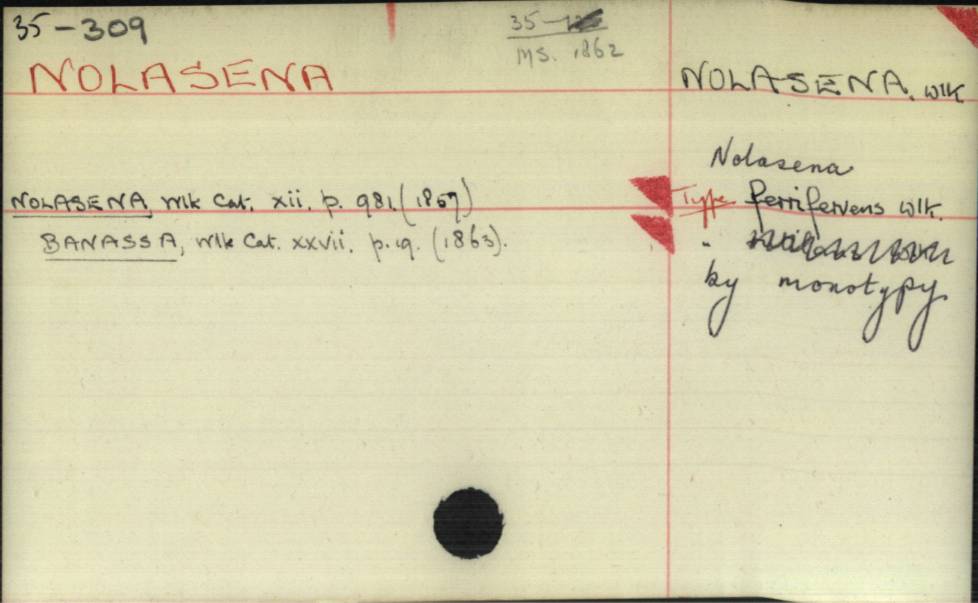 35-309
35-
MS. 1862
NOLASENA
NOLASENA, Wlk
Nolasena
NOLASENA, Wlk Cat. xii. p. 981. (1857)
Type ferrifervens Wlk.
BANASSA, Wlk Cat. xxvii. p. 19. (1863).
"
by monotypy